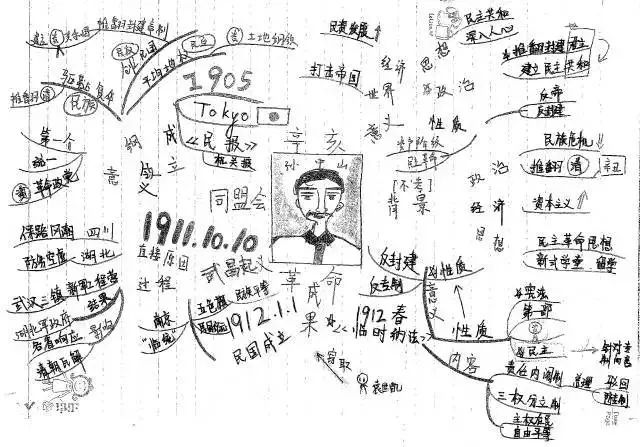 推翻封建帝制
民权
创立民国
平均地权
民生
土地纲领
驱除鞑虏
推翻清
民族
1905
Tokyo
《民报》
机关报
成立
纲
意义
第一个
统一
资
革命政党
同盟会
保路风潮 四川
防务空虚 湖北
直接原因
1911.10.10
武昌起义
过程
武汉三镇
结果
湖北军政府
各省响应
影响
清朝瓦解
南京
临时
五色旗
民族平等
1912.1.1
民国成立
辛亥
孙中山
革命
成果
窃取
袁世凯
民资发展
打击帝国
经济
世界
思想
政治
意义
民主共和
深入人心
推翻封建帝王
建立民主共和
反帝
反封建
性质
资产阶级
民主革命
[不考]
背景
政治
民族危机
推翻清
辛丑
经济
资本主义
思想
民主革命思想
新式学堂 留学
反封建
反专制
性质
意义
1912 春
《临时约法》
性质
宪法
第一部
资
民主
内容
责任内阁制
总理
驳回
针对袁
三权分立制
主权在民
自由平等